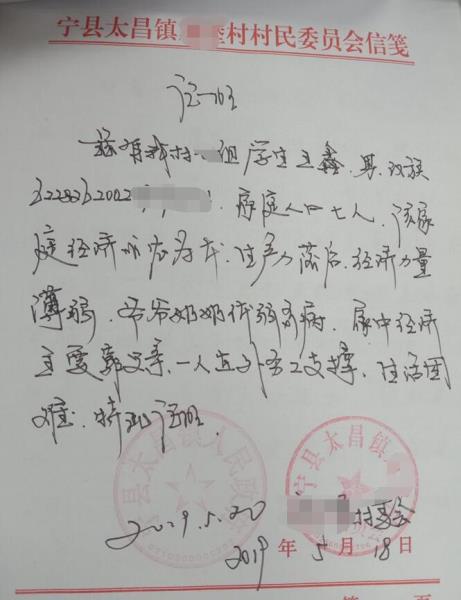 宁县太昌镇 村村民委员会信笺
证明
兹有我村 组学生王鑫,男,汉族
6228262002 ,家庭人口七人,该家
庭经济以农为主,生产力落后,经济力量
薄弱,爷爷奶奶体弱多病,家中经济
主要靠父亲一人在外务工支撑,生活困
难,特此证明
宁县太昌镇人民政府
宁县太昌镇
2019.5.20
村委会
2019年5月18日